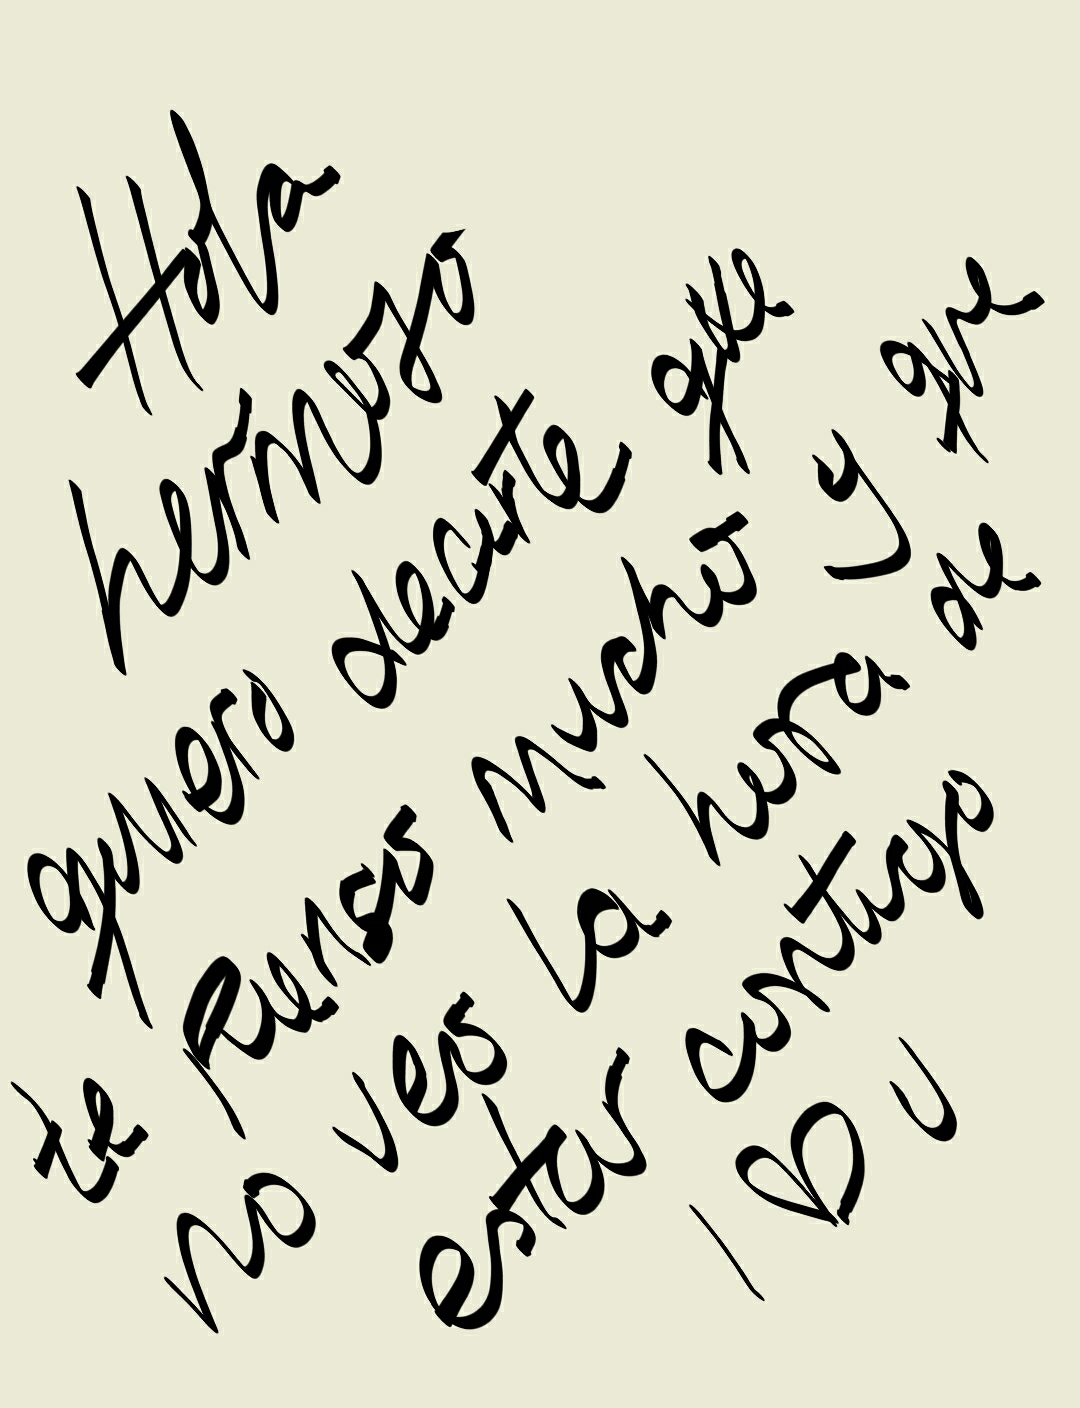 Hola
hermoso
quiero decirte que
te pienso mucho y que
no veo la hora de
estar contigo
I ♡ U